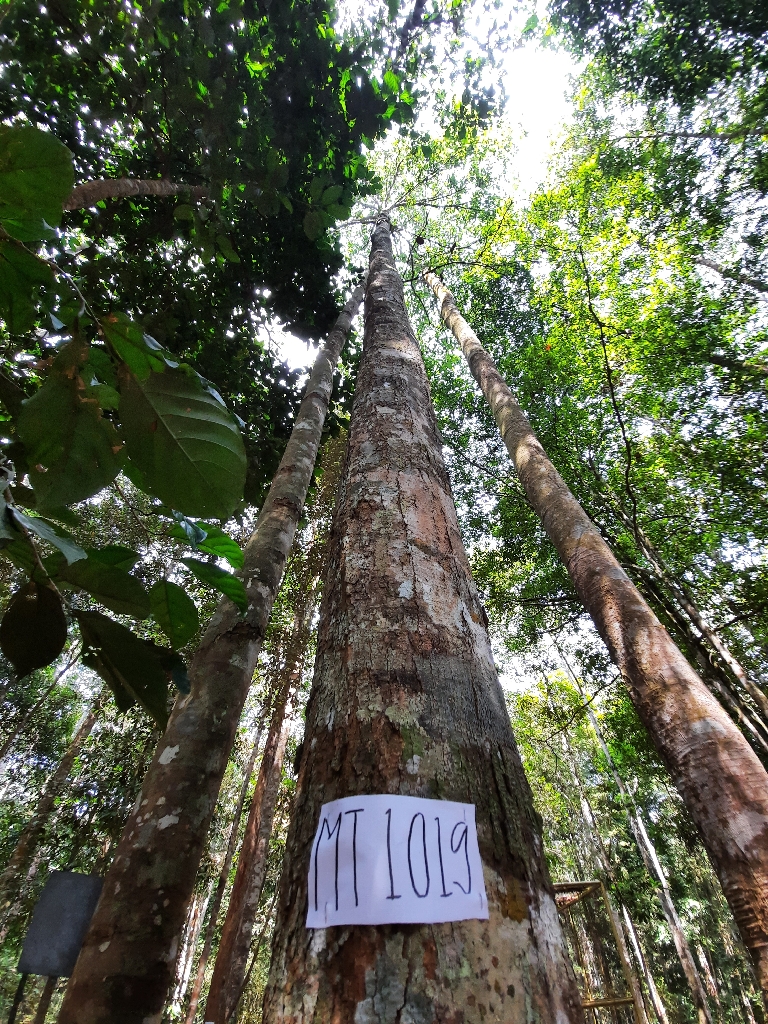 MT 1019